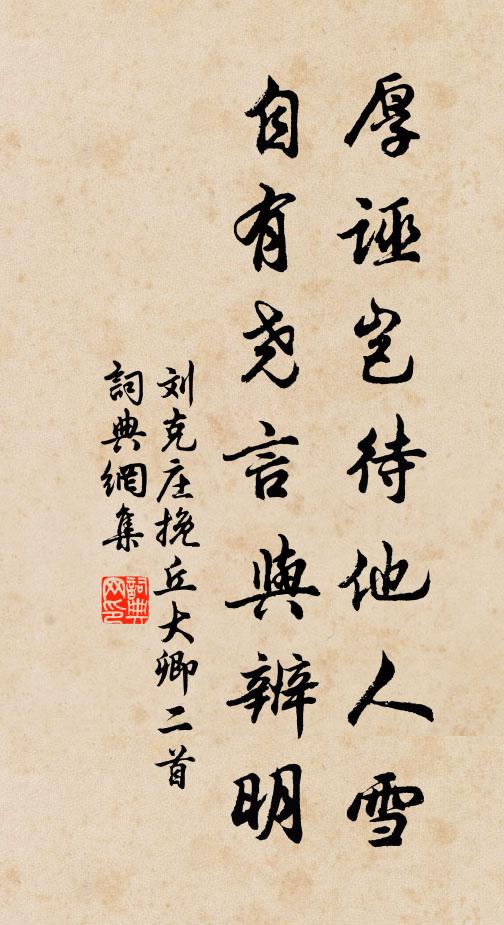 厚诬岂待他人雪
自有尧言与辨明
刘克庄挽丘大卿二首
詞典網集
詞典網印